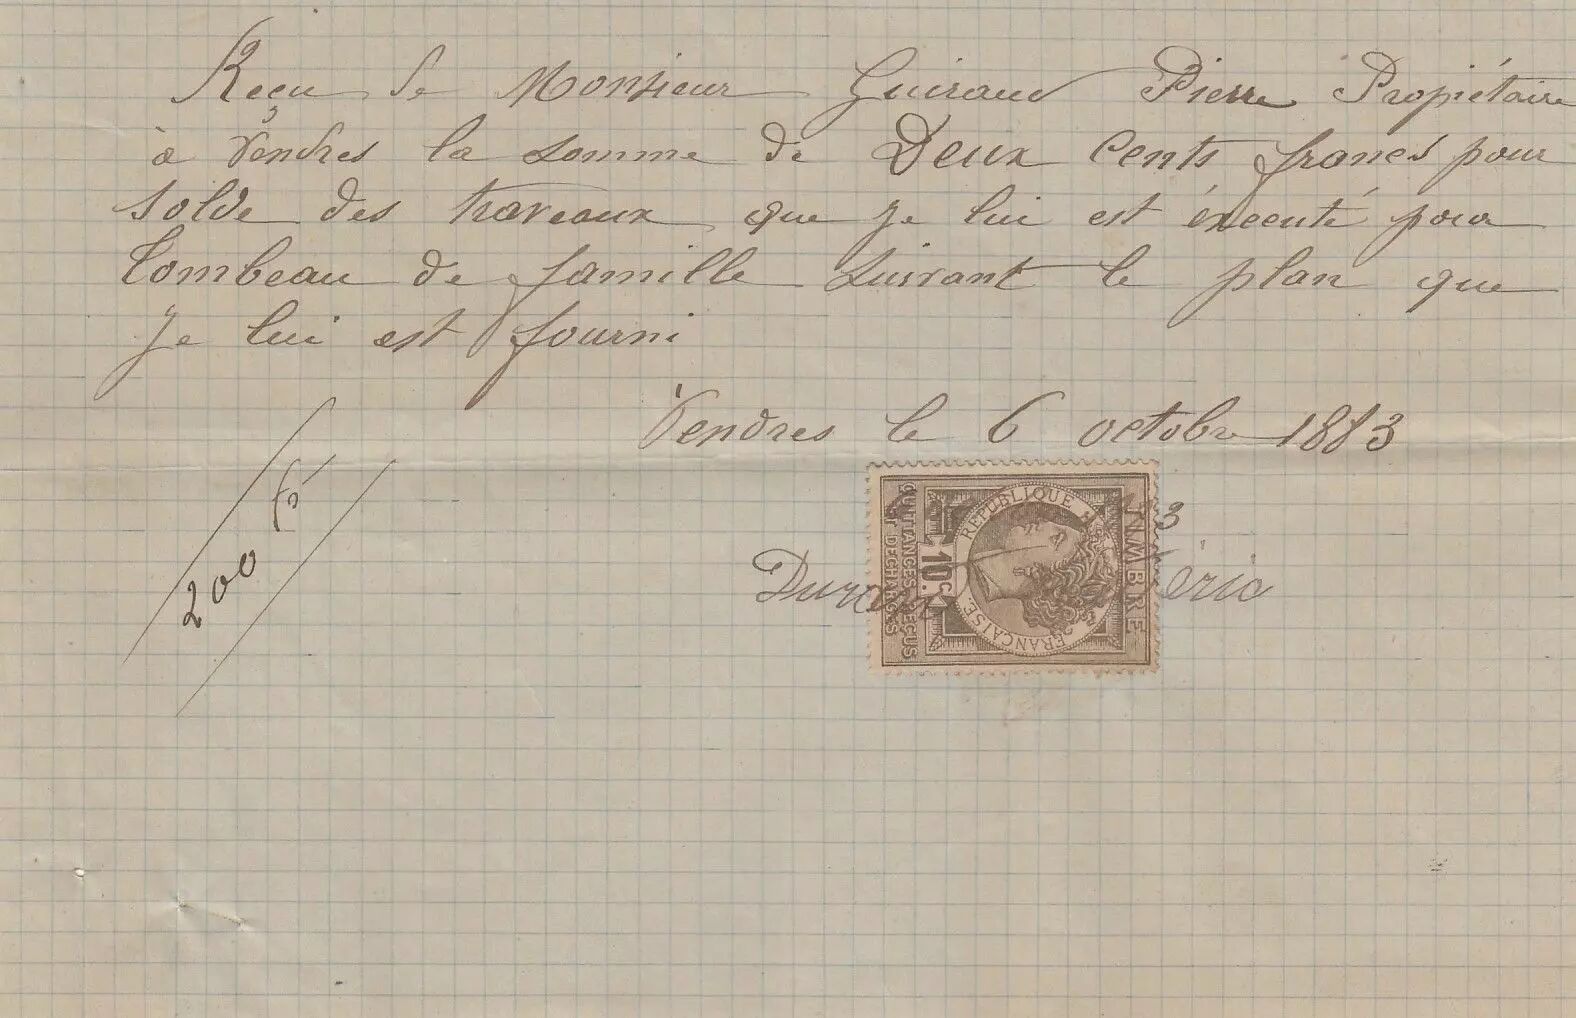 Reçu de Monsieur Guiraud Pierre Propiétaire
à Vendres la somme de Deux Cents francs pour
solde des traveaux que je lui est éxecuté pour
Tombeau de famille suivant le plan que
je lui est fourni
Vendres le 6 octobre 1883
200 f
QUITTANCES REÇUS
ET DÉCHARGES
10 C.
RÉPUBLIQUE
FRANÇAISE
TIMBRE
3